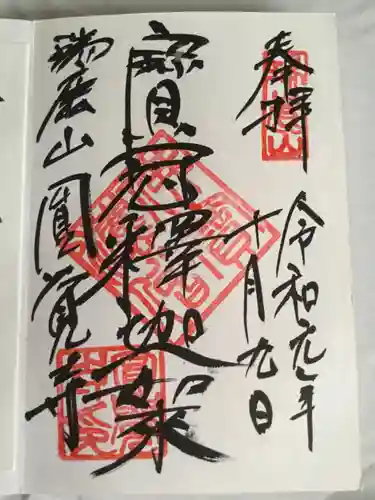 奉拝
令和元年
十月九日
寶冠釋迦如来
瑞鹿山圓覚寺